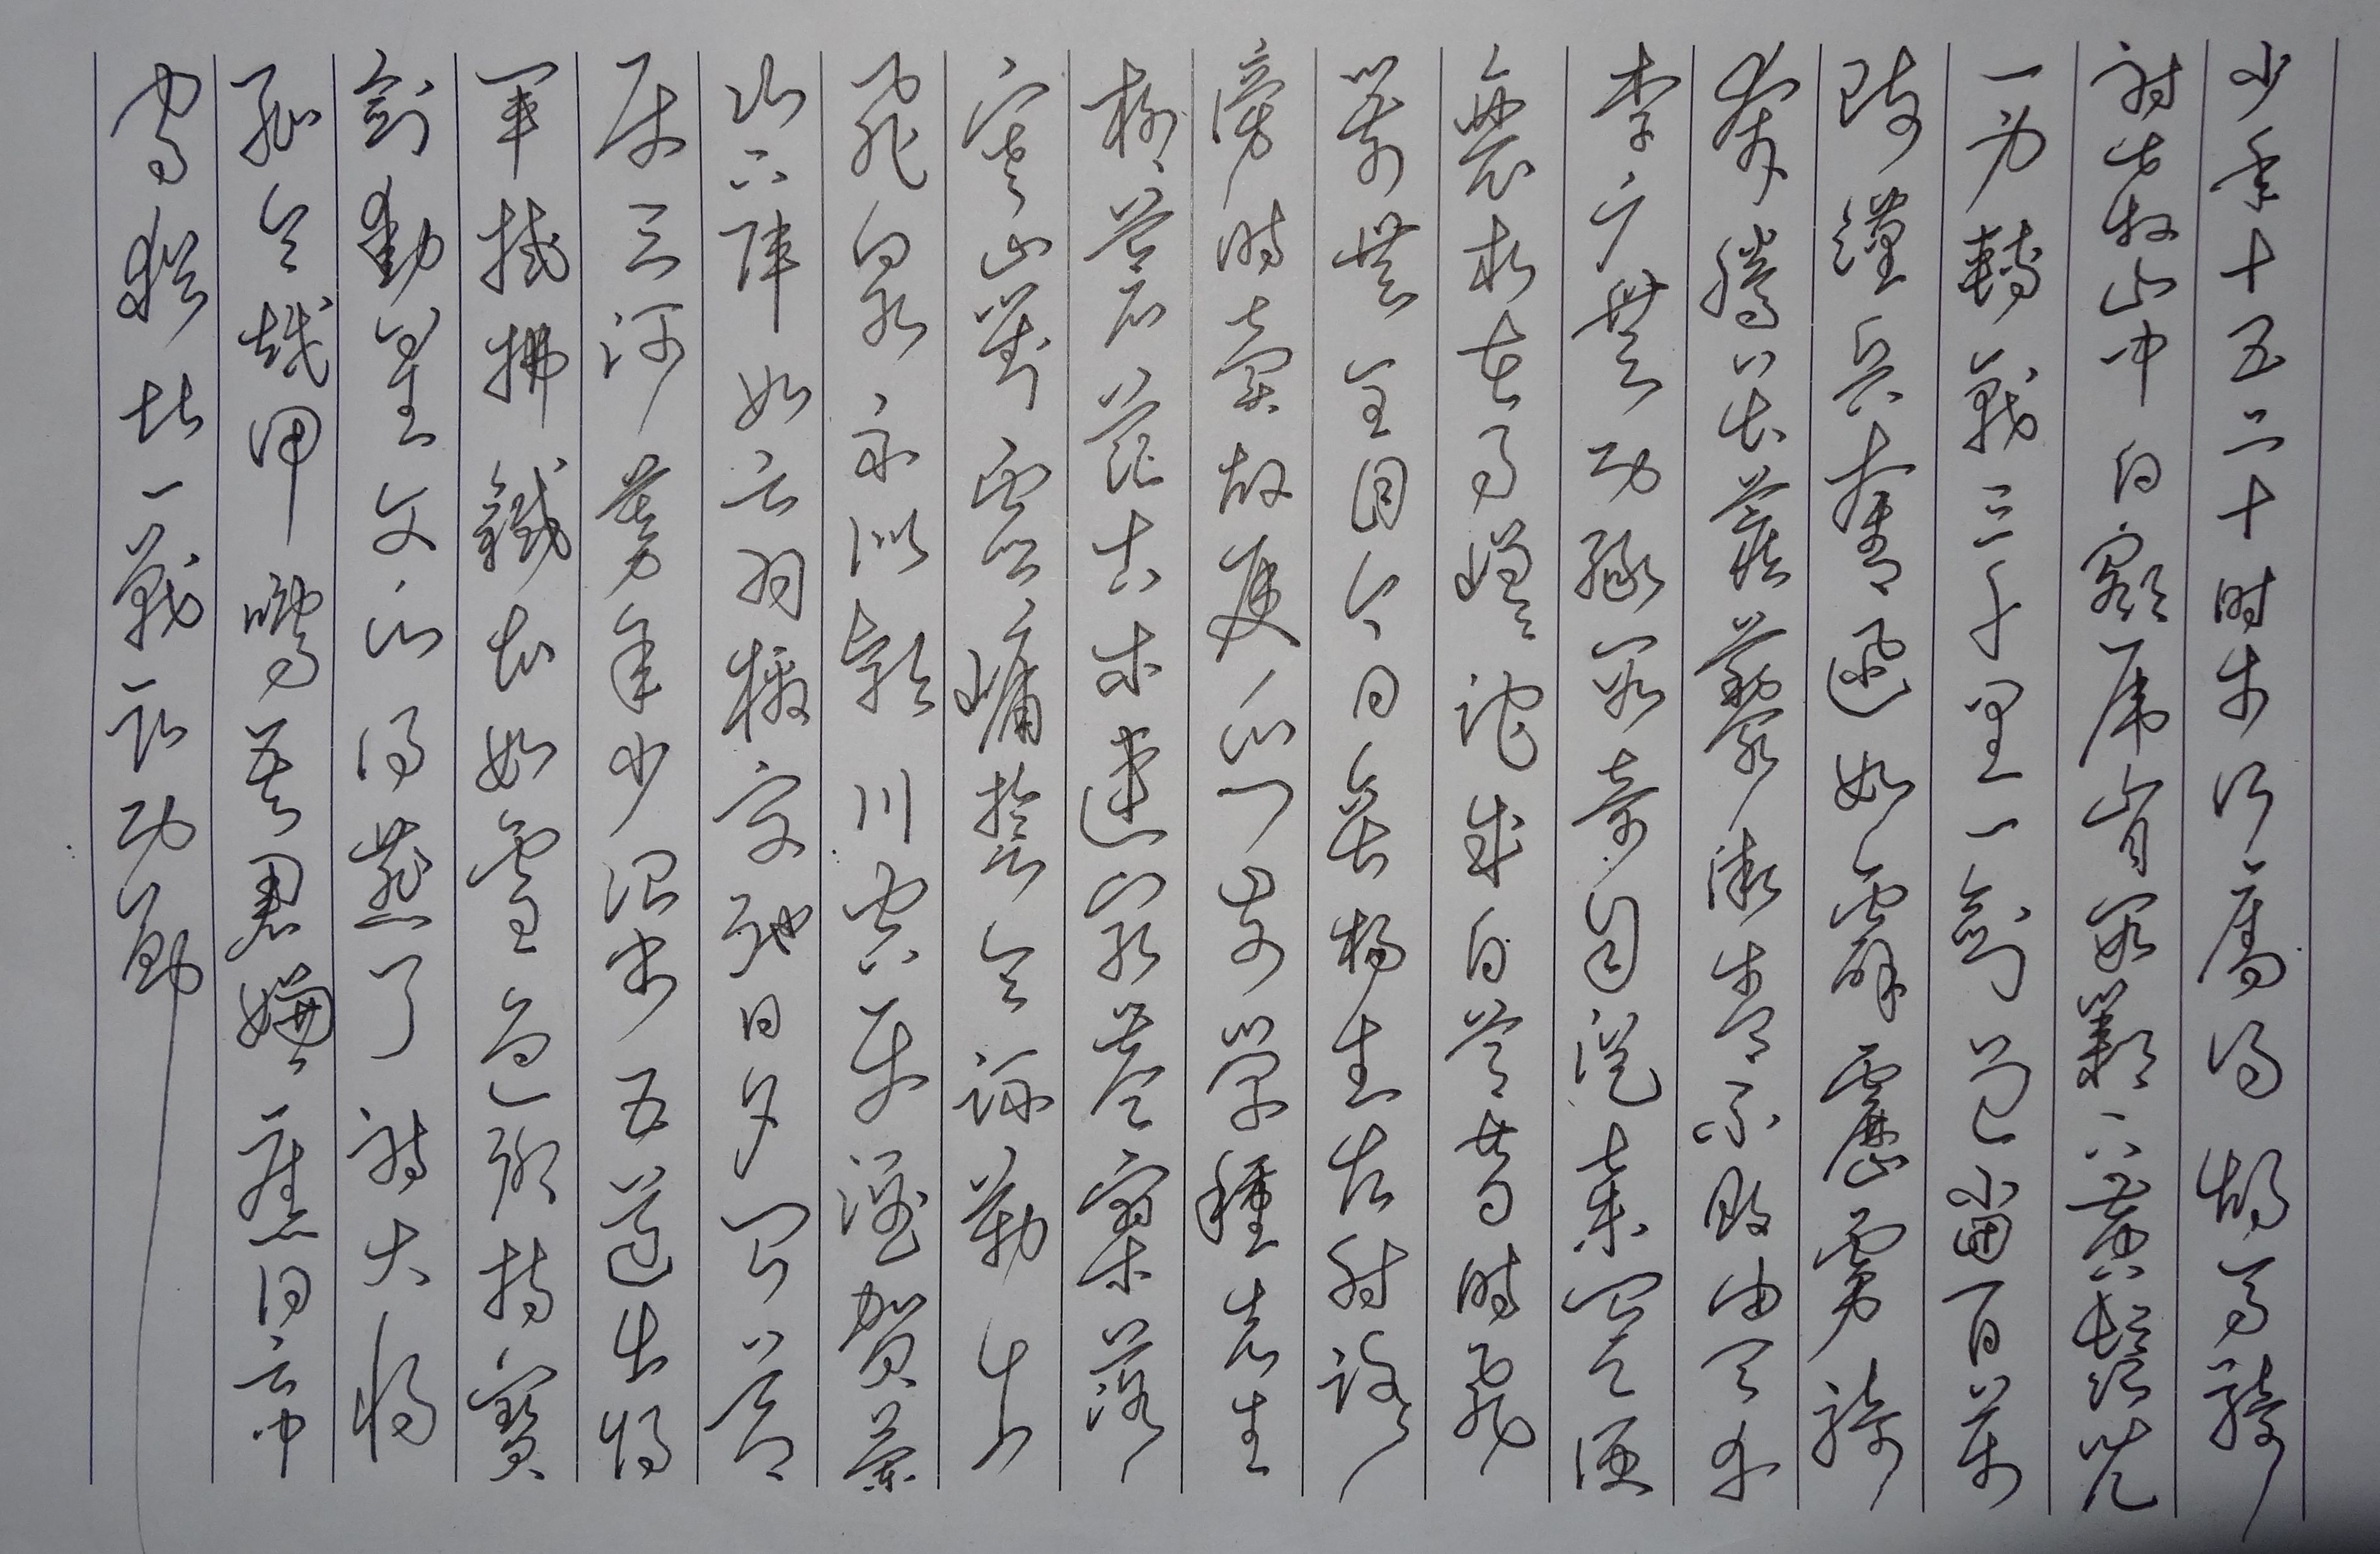 少年十五二十時步行奪得胡馬騎
射殺山中白額虎肯數鄴下黃鬚兒
一身轉戰三千里一劍曾當百萬
師漢兵奮迅如霹靂虜騎
奔騰畏蒺藜衛青不敗由天幸
李廣無功緣數奇自從棄置便
衰朽世事蹉跎成白首昔時飛
箭無全目今日垂楊生左肘路
旁時賣故侯瓜門前學種先生
柳蒼茫古木連窮巷寥落
寒山對虛牖誓令疏勒出
飛泉不似潁川空使酒賀蘭
山下陣如雲羽檄交馳日夕聞節
使三河募年少詔書五道出將
軍試拂鐵衣如雪色聊持寶
劍動星文願得燕弓射大將
恥令越甲鳴吾君嫌舊日雲中
守猶堪一戰取功勳